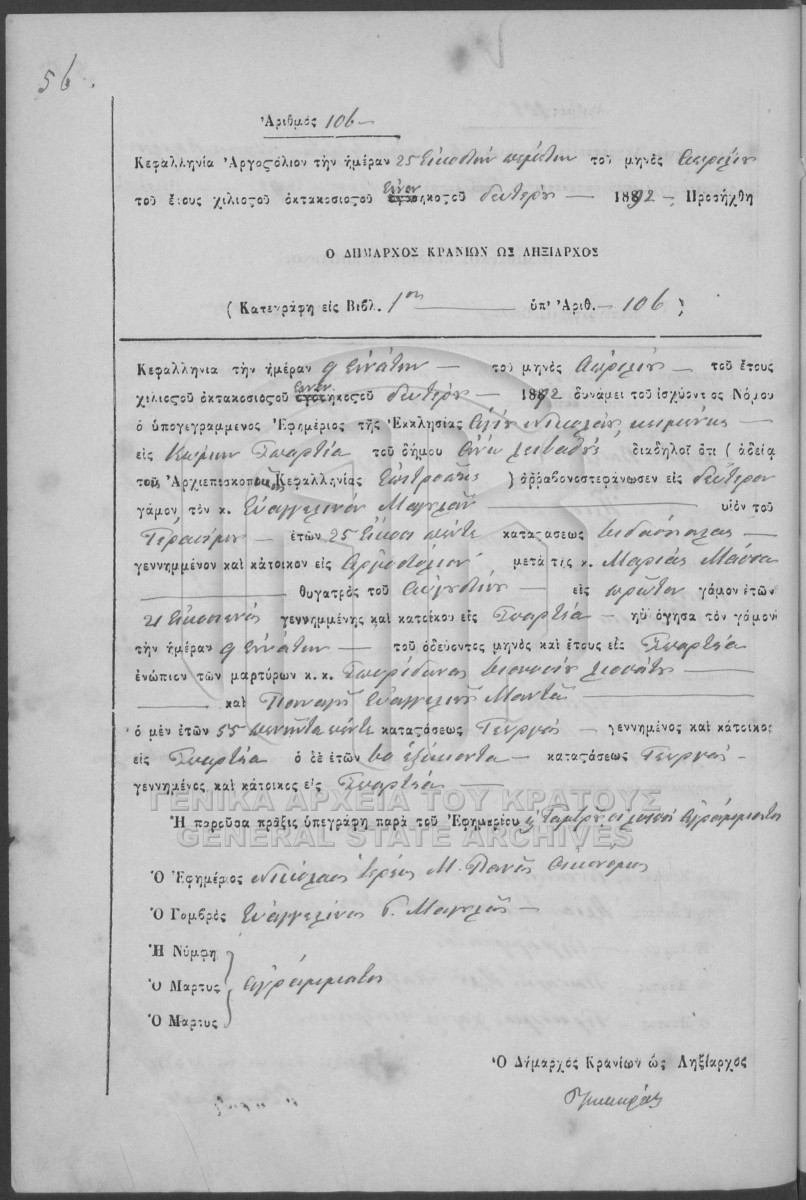 56.
Ἀριθμός 106
Κεφαλληνία Ἀργοςόλιον τὴν ἡμέραν 25 Εἰκοστὴν πέμπτην τοῦ μηνὸς Ἀπριλίου
τοῦ ἔτους χιλιοςοῦ ὀκτακοσιοςοῦ ἐνενηκοςοῦ δευτέρου 1892 Προσήχθη
Ο ΔΗΜΑΡΧΟΣ ΚΡΑΝΙΩΝ ΩΣ ΛΗΞΙΑΡΧΟΣ
( Κατεγράφη εἰς Βιβλ. 1ον ὑπ' Ἀριθ. 106 )
Κεφαλληνια τὴν ἡμέραν 9 ἐννάτην τοῦ μηνὸς Ἀπριλίου τοῦ ἔτους
χιλιοςοῦ ὀκτακοσιοςοῦ ἐνενηκοςοῦ δευτέρου 1892 δυνάμει τοῦ ἰσχύοντος Νόμου
ὁ ὑπογεγραμμενος Ἐφημέριος τῆς Ἐκκλησίας Ἁγίου Νικολάου
εἰς Κώμην Σπαρτία τοῦ δήμου Λειβαθοῦς διαδηλοῖ ὅτι ( ἀδείᾳ
τοῦ Ἀρχιεπισκοποῦ Κεφαλληνίας Ἐπιτροπῆς ) ἀρραβονοστεφάνωσεν εἰς δεύτερον
γάμον τὸν κ. Εὐαγγελινὸν Μαγουλᾶν υἱὸν τοῦ
Γερασίμου ἐτῶν 25 Εἴκοσι πέντε κατατάσεως
γεννημμένον καὶ κάτοικον εἰς Ἀργοστόλιον μετὰ τῆς κ. Μαρίας
θυγατρὸς τοῦ Αὐγουστίνου εἰς πρῶτον γάμον ἐτῶν
21 Εἰκοσιενός γεννημμένης καὶ κατοίκου εἰς Σπαρτία ηὐλόγησα τὸν γάμον
τὴν ἡμέραν 9 ἐννάτην τοῦ ὁδεύοντος μηνὸς καὶ ἔτους εἰς Σπαρτία
ἐνώπιον τῶν μαρτύρων κ. κ. Σπυρίδωνος Διονυσίου
καὶ Παναγῆ Εὐαγγελινοῦ
ὁ μὲν ἐτῶν 55 πενῆντα πέντε καταςάσεως Γεωργός γεννημένος καὶ κάτοικος
εἰς Σπαρτία ὁ δὲ ἐτῶν 60 ἑξήκοντα καταςάσεως Γεωργός
γεννημένος καὶ κάτοικος εἰς Σπαρτία
ΓΕΝΙΚΑ ΑΡΧΕΙΑ ΤΟΥ ΚΡΑΤΟΥΣ
Ἡ παροῦσα πρᾶξις ὑπεγράφη παρὰ τοῦ Ἐφημερίου Γαμβροῦ οἱ λοιποί ἀγράμματοι
GENERAL STATE ARCHIVES
Ὁ Ἐφημέριος Νικόλαος ἱερεὺς Μ. Πανᾶς Οἰκονόμος
Ὁ Γαμβρὸς Εὐαγγελινος Γ. Μαγουλᾶς
Ἡ Νύμφη
Ὁ Μαρτυς ἀγράμματοι
Ὁ Μαρτυς
Ὁ Δήμαρχος Κρανίων ὡς Ληξίαρχος